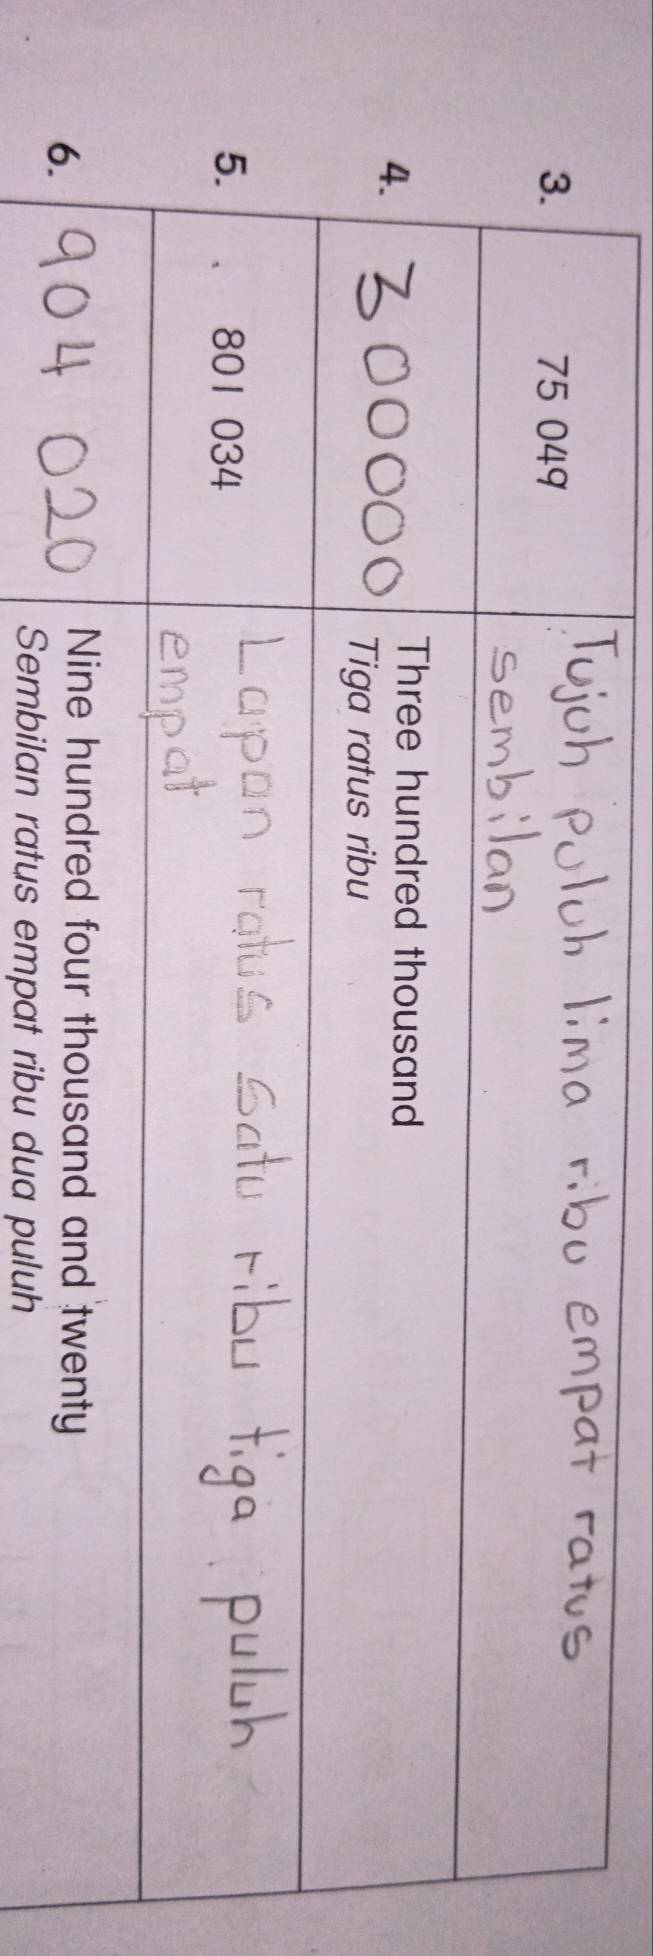 3. 75 049 Tujuh puluh lima ribu empat ratus
sembilan
4. 300000 Three hundred thousand
Tiga ratus ribu
5. 801 034 Lapan ratus satu ribu tiga puluh
empat
6. 904 020 Nine hundred four thousand and twenty
Sembilan ratus empat ribu dua puluh